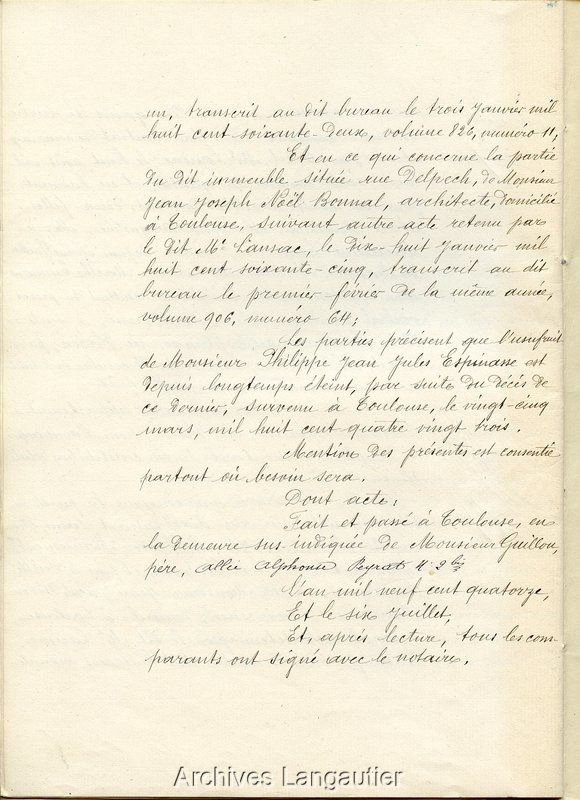 un, transcrit au dit bureau le trois Janvier mil
huit cent soixante-deux, volume 826, numéro 11;
Et en ce qui concerne la partie
du dit immeuble située rue Delpech, de Monsieur
Jean Joseph Noël Bonnal, architecte, domicilié
à Toulouse, suivant autre acte retenu par
le dit Me Lansac, le dix-huit Janvier mil
huit cent soixante-cinq, transcrit au dit
bureau le premier février de la même année,
volume 906, numéro 64;
Les parties précisent que l'usufruit
de Monsieur Philippe Jean Jules Espinasse est
depuis longtemps éteint, par suite du décès de
ce dernier, survenu à Toulouse, le vingt-cinq
mars, mil huit cent quatre vingt trois.
Mention des présentes est consentie
partout où besoin sera.
Dont acte:
Fait et passé à Toulouse, en
la demeure sus-indiquée de Monsieur Guillou,
père, allée Alphonse Peyrat n° 2 bis
L'an mil neuf cent quatorze,
Et le six Juillet,
Et, après lecture, tous les com-
parants ont signé avec le notaire.
Archives Langautier